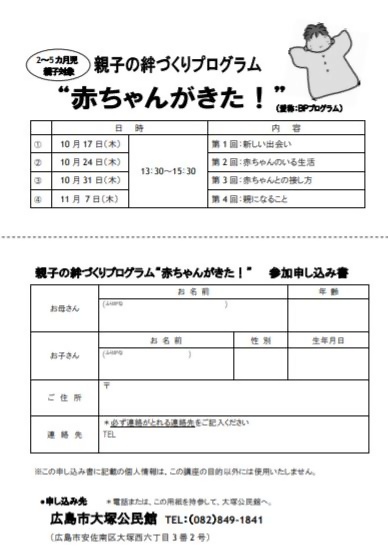 2～5カ月児
親子対象
親子の絆づくりプログラム
“赤ちゃんがきた！”
(愛称:BPプログラム)
日 時 内 容
① 10月17日(木) 13:30～15:30 第1回:新しい出会い
② 10月24日(木) 第2回:赤ちゃんのいる生活
③ 10月31日(木) 第3回:赤ちゃんとの接し方
④ 11月 7日(木) 第4回:親になること
親子の絆づくりプログラム“赤ちゃんがきた！” 参加申し込み書
お母さん お名前 年齢
(ふりがな )
お子さん お名前 性別 生年月日
(ふりがな )
ご住所 〒
連絡先 ＊必ず連絡がとれる連絡先をご記入ください
TEL
※この申し込み書に記載の個人情報は、この講座の目的以外には使用いたしません。
●申し込み先 ＊電話または、この用紙を持参して、大塚公民館へ。
広島市大塚公民館 TEL:(082)849-1841
(広島市安佐南区大塚西六丁目3番2号)